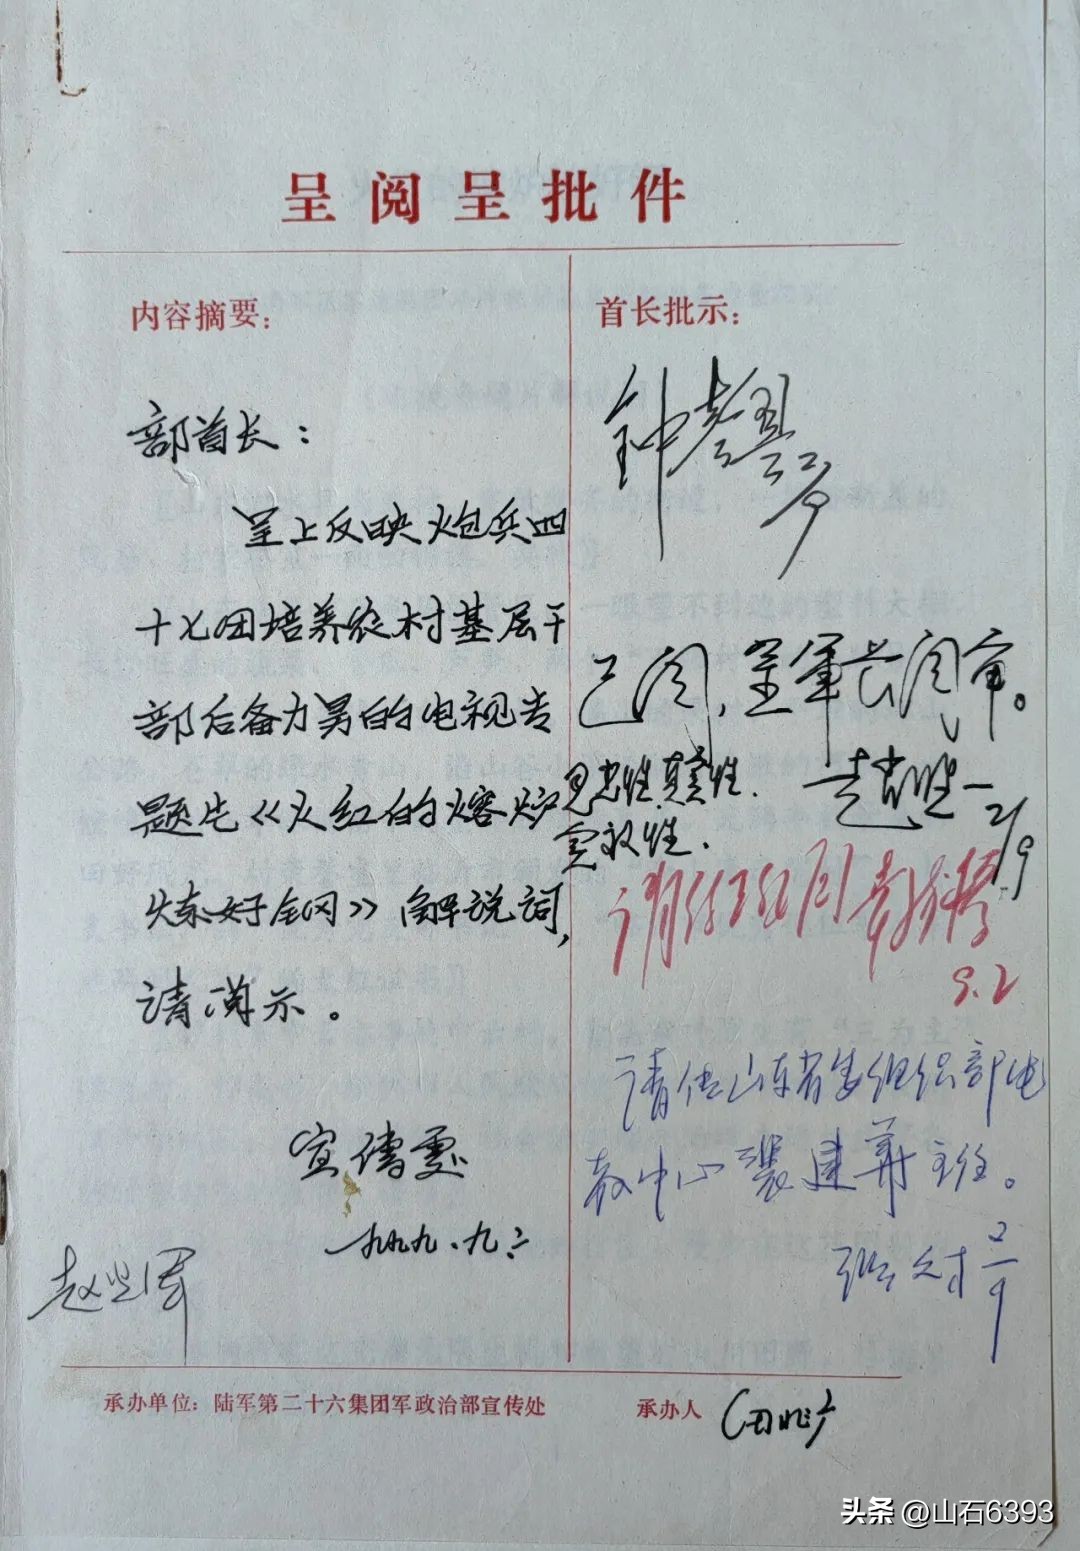 呈阅呈批件
内容摘要:
部首长:
呈上反映炮兵四
十七团培养农村基层干
部后备力男的电视专
题片《火红的熔炉
炼好钢》解说词,
请阅示。
宣传处
一九九九.九.二
首长批示:
2/9
已阅,呈军长阅审。
思想性、真实性、
实效性.
2/9
请
阅
9.2
请传山东省委组织部电
教中心 建 主任。
张 2/9
赵 军
承办单位: 陆军第二十六集团军政治部宣传处
承办人
头条 @山石6393